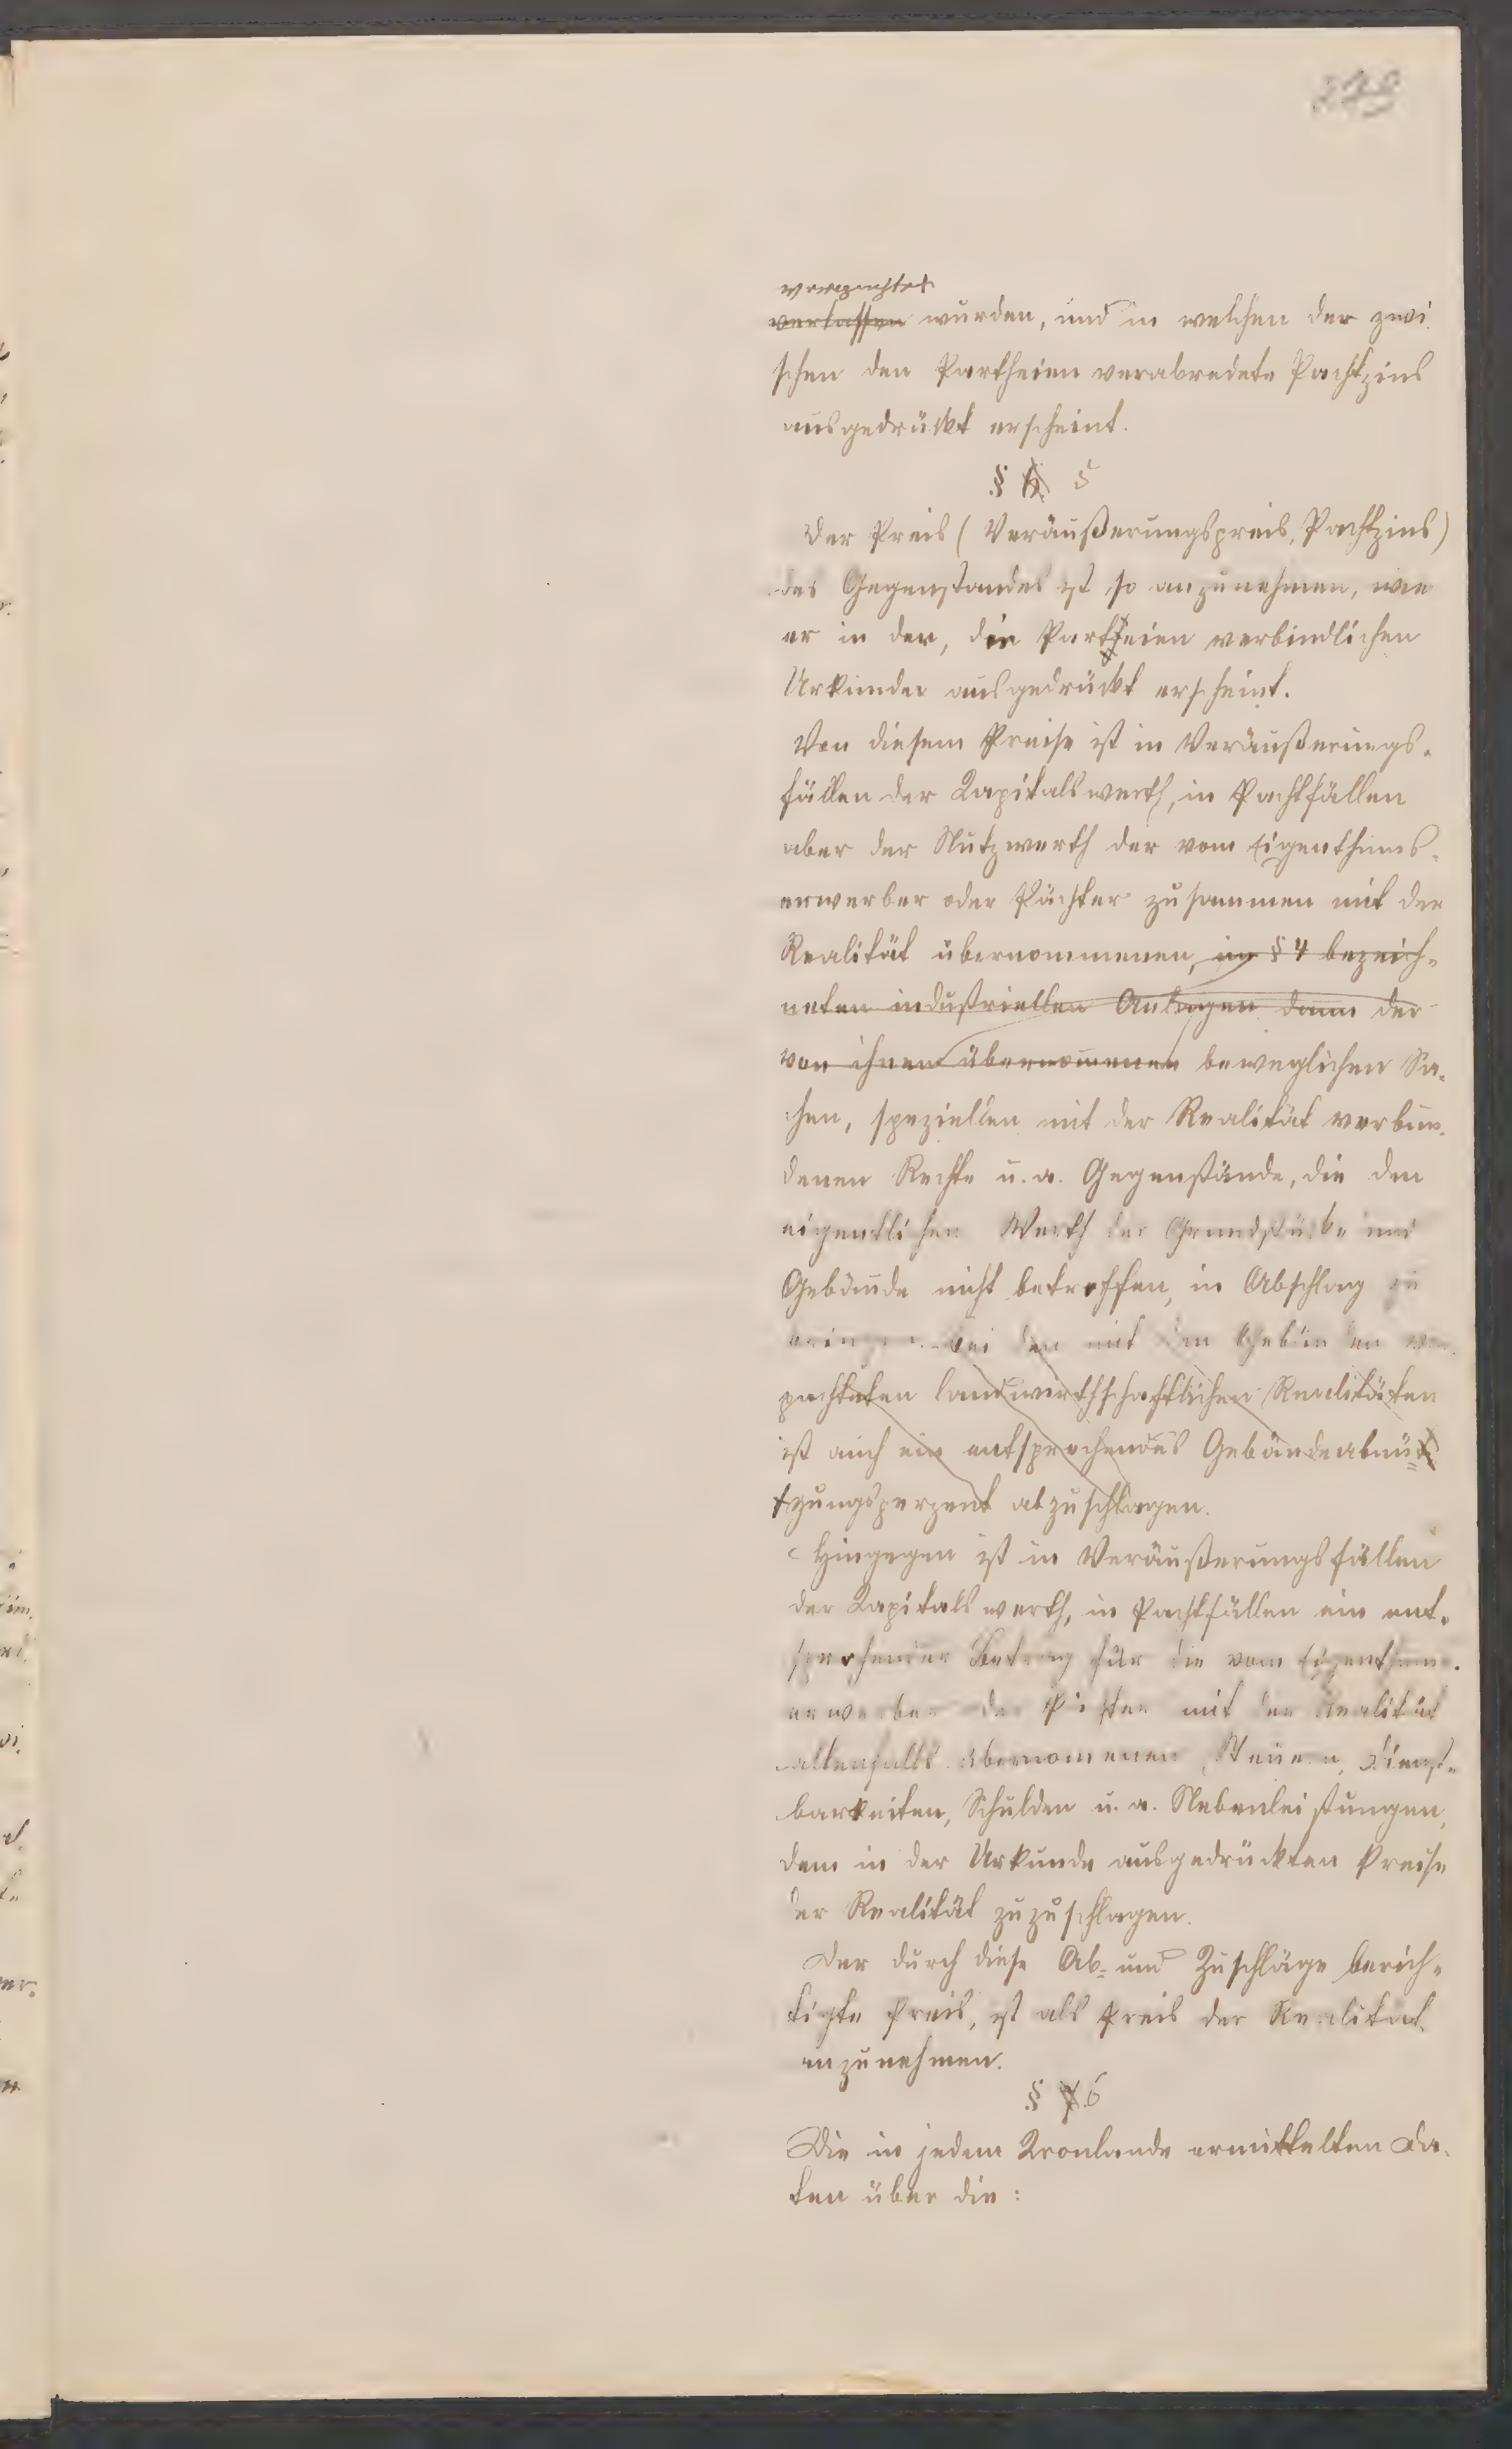 verpachtet
verlassen wurden, und in welchen der zwi-
schen den Partheien verabredete Pachtzins
ausgedrückt erscheint.
§ 6 5
Der Preis (Veräußerungspreis, Pachtzins)
des Gegenstandes ist so anzunehmen, wie
er in der, die Partheien verbindlichen
Urkunde ausgedrückt erscheint.
Von diesem Preise ist in Veräußerungs-
fällen der Kapitalswerth, in Pachtfällen
aber der Nutzwerth der vom Eigenthums-
erwerber oder Pächter zusammen mit der
Realität übernommenen, im § 4 bezeich-
neten industriellen Anlagen dann der
von ihnen übernommenen beweglichen Sa-
chen, speziellen mit der Realität verbun-
denen Rechte u. a. Gegenstände, die den
eigentlichen Werth der Grundstücke und
Gebäude nicht betreffen, in Abschlag zu
bei den mit den Gebäuden ver-
pachteten landwirthschaftlichen Realitäten
ist auch ein entsprechendes Gebäudeabnü-
tzungsperzent abzuschlagen.
Hingegen ist in Veräußerungsfällen
der Kapitalswerth, in Pachtfällen ein ent-
sprechender Betrag für die vom Eigenthums-
erwerber oder Pächter mit der Realität
allenfalls übernomenen Steuern, Dienst-
barkeiten, Schulden u. a. Nebenleistungen,
dem in der Urkunde ausgedrückten Preise
der Realität zuzuschlagen.
Der durch diese Ab- und Zuschläge berich-
tigte Preis, ist als Preis der Realität
anzunehmen.
§ 7 6
Die in jedem Kronlande ermittelten Da-
ten über die: